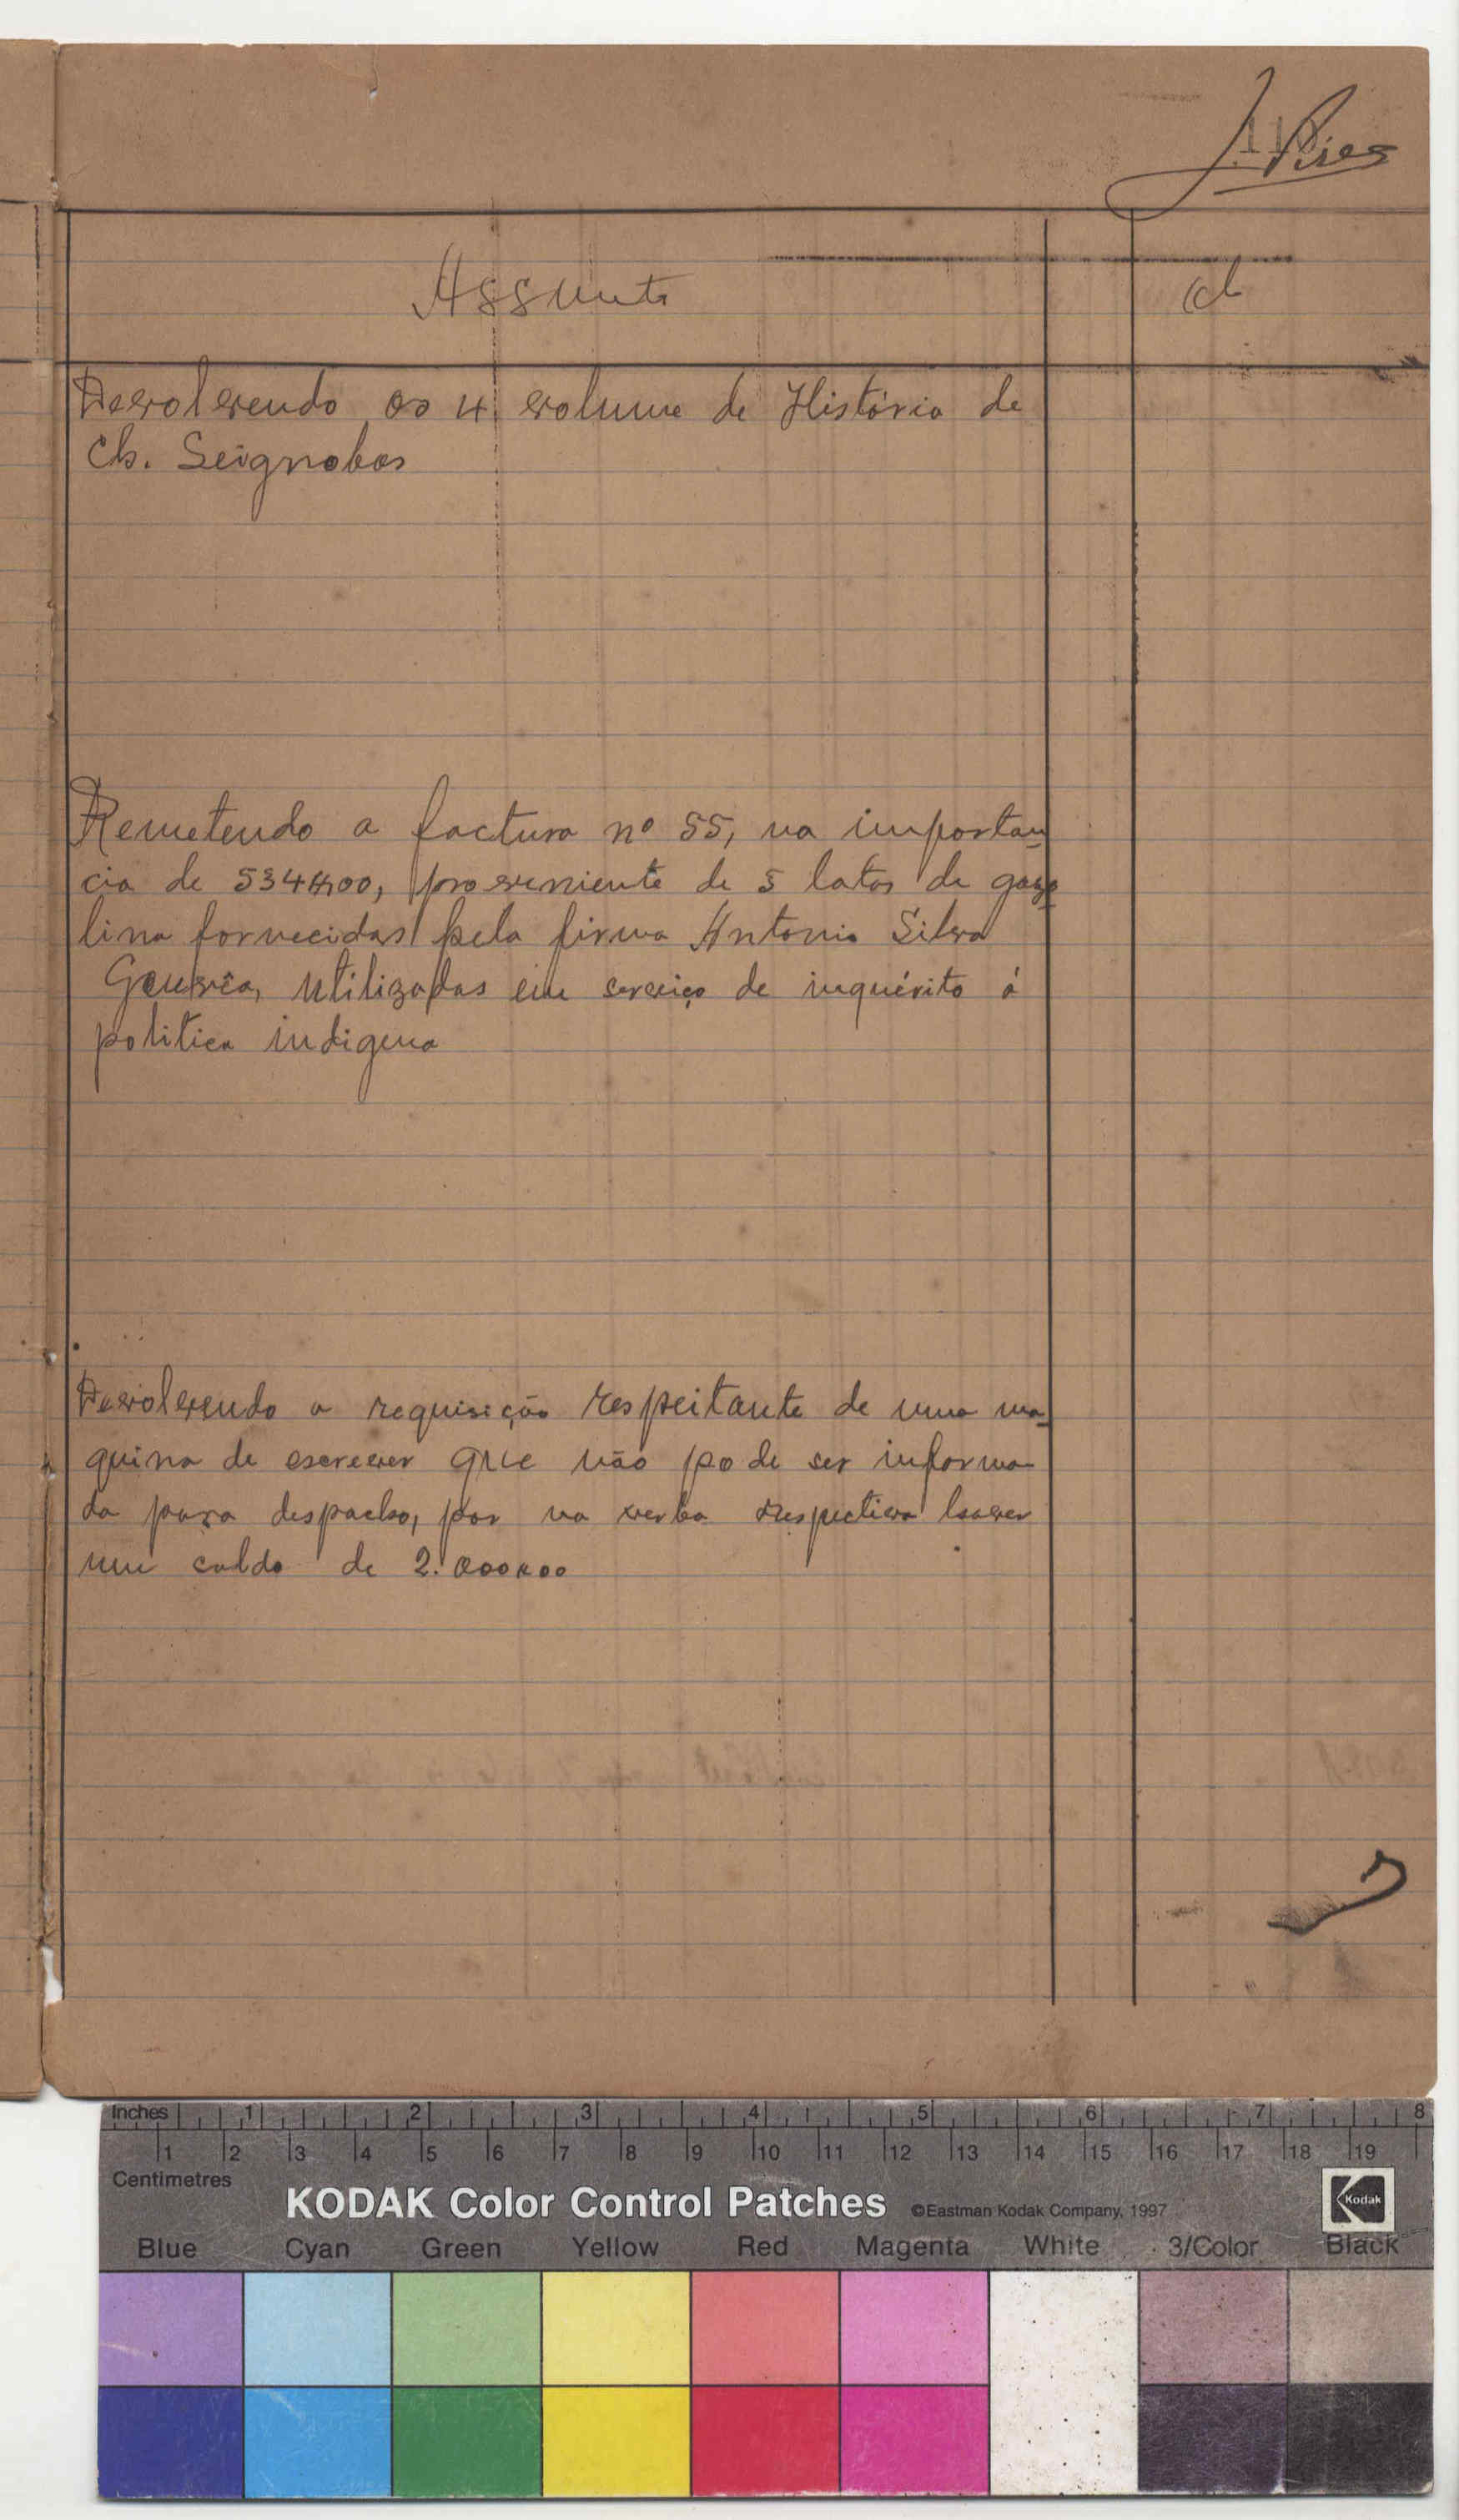 110
J. Pires
Assunto
Cl
Devolvendo os 4 volume de História de
Ch. Seignobos
Remetendo a factura nº 55, na importan-
cia de 534$00, proveniente de 5 latas de gazo-
lina fornecidas pela firma Antonio Silva
Gouvêa, utilizadas em serviço de inquérito á
politica indigena
Devolvendo a requisição respeitante de uma ma-
quina de escrever que não pode ser informa-
da para despacho, por na verba respectiva haver
um saldo de 2.000$00
Inches 1 2 3 4 5 6 7 8
1 2 3 4 5 6 7 8 9 10 11 12 13 14 15 16 17 18 19
Centimetres
KODAK Color Control Patches ©Eastman Kodak Company, 1997 Kodak
Blue Cyan Green Yellow Red Magenta White 3/Color Black